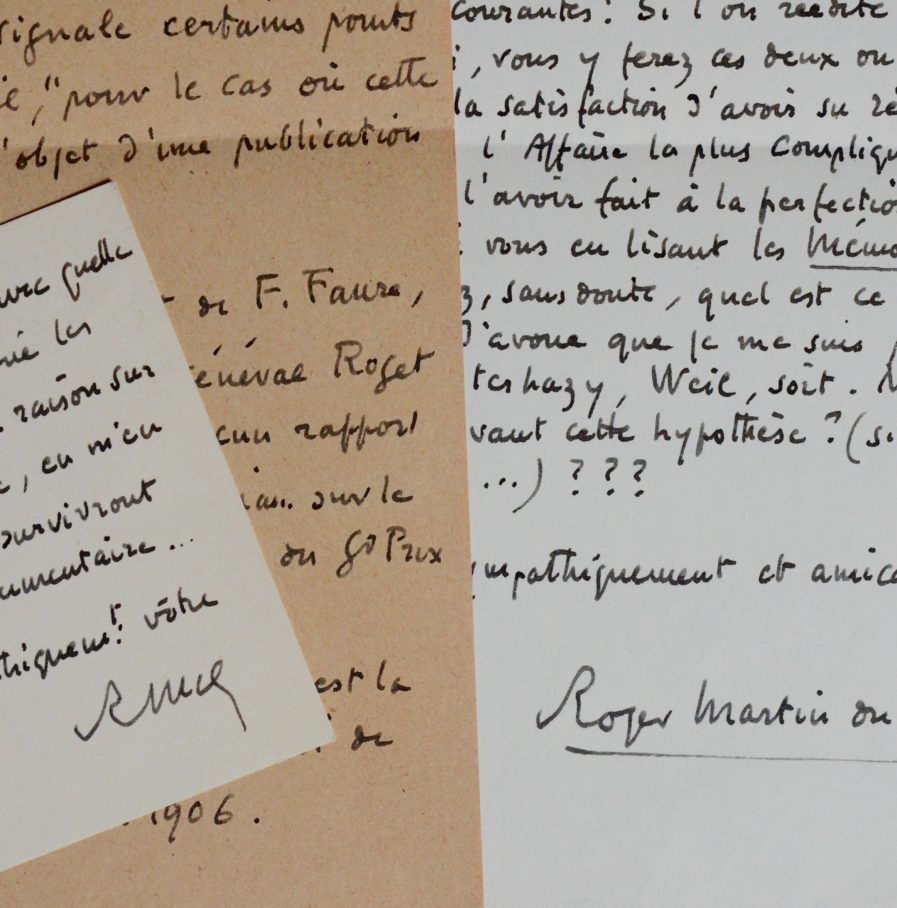 signale certains points
ie," pour le cas où cette
l'objet d'une publication
de F. Faure,
énéral Roget
cun rapport
sur le
du Gd Prix
est la
de
1906.
avec quelle
les
raison sur
, en m'en
survivront
umentaire...
thiquemt. vôtre
RMG
courantes! Si l'on réédite
, vous y ferez ces deux ou
la satisfaction d'avoir su ré
l'Affaire la plus compliqu
l'avoir fait à la perfectio
vous en lisant les Mémo
z, sans doute, quel est ce
J'avoue que je me suis
terhazy, Weil, soit.
vant cette hypothèse? (si
...) ? ? ?
ympathiquement et amica
Roger Martin du